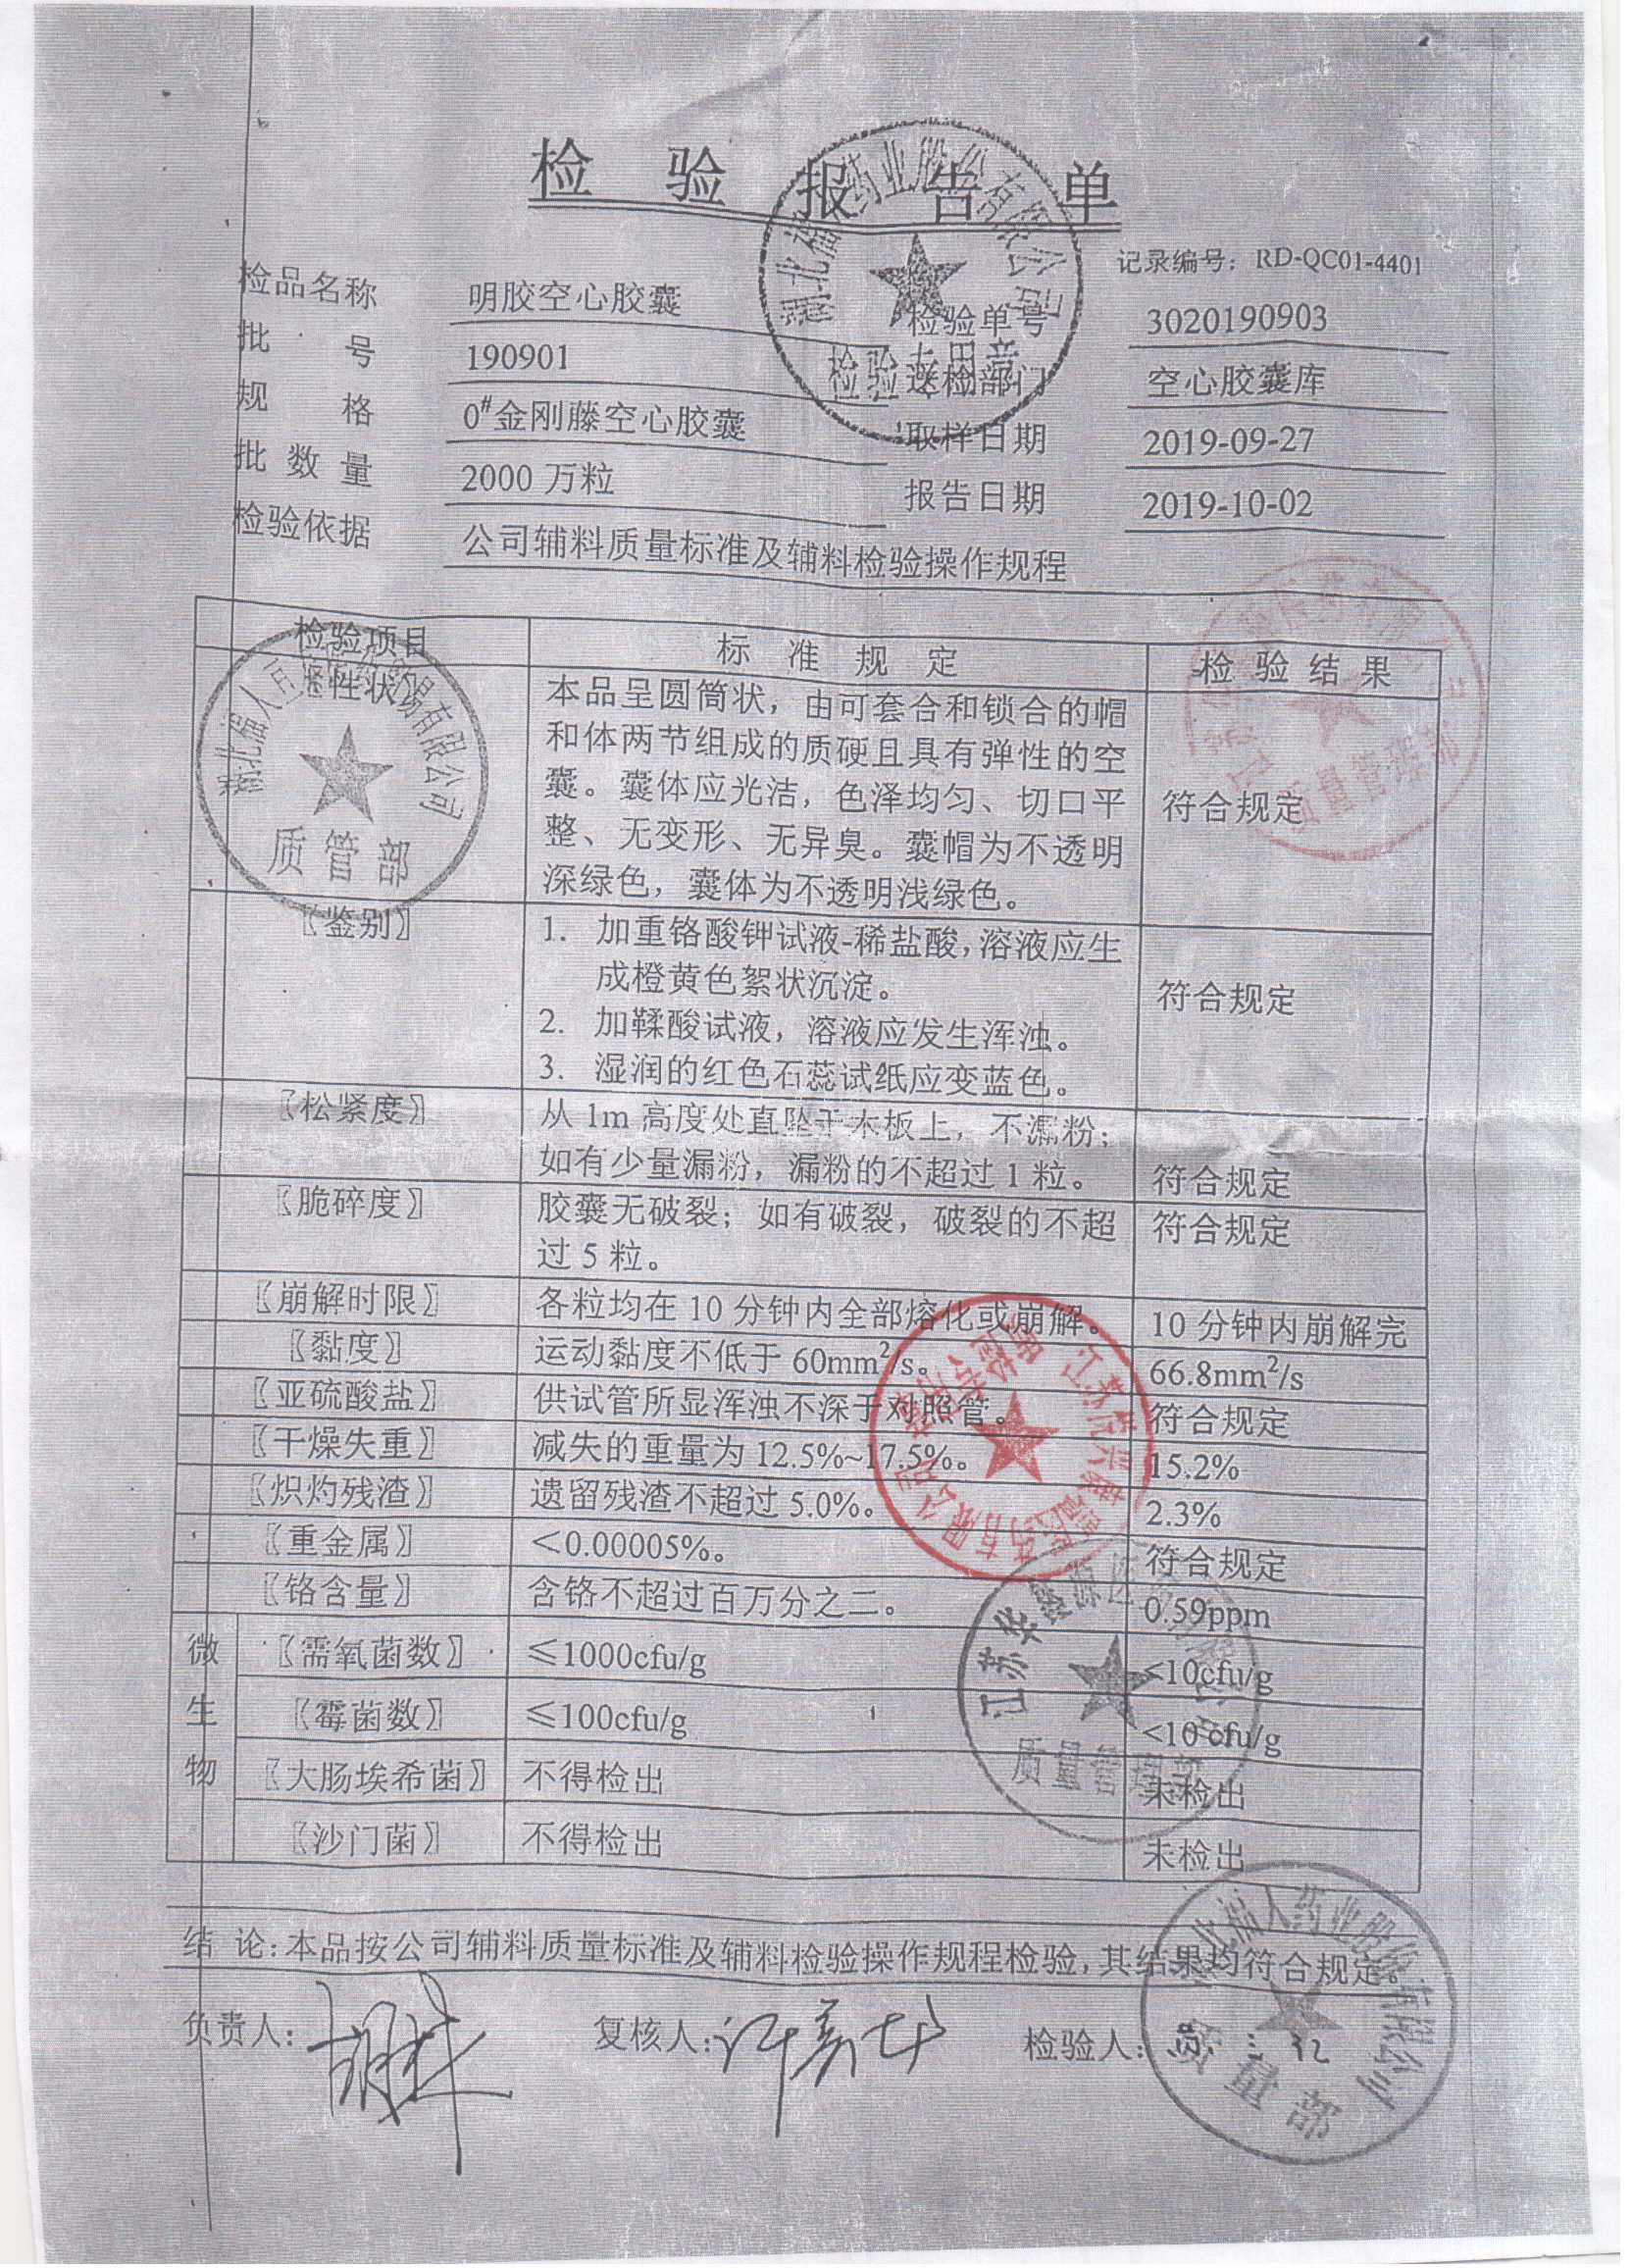 检验报告单
记录编号：RD-QC01-4401
检品名称 明胶空心胶囊 检验单号 3020190903
批号 190901 送检部门 空心胶囊库
规格 0#金刚藤空心胶囊 取样日期 2019-09-27
批数量 2000 万粒 报告日期 2019-10-02
检验依据 公司辅料质量标准及辅料检验操作规程
检验项目 标准规定 检验结果
性状 本品呈圆筒状，由可套合和锁合的帽
和体两节组成的质硬且具有弹性的空
囊。囊体应光洁，色泽均匀、切口平 符合规定
整、无变形、无异臭。囊帽为不透明
深绿色，囊体为不透明浅绿色。
〖鉴别〗 1. 加重铬酸钾试液-稀盐酸，溶液应生
成橙黄色絮状沉淀。 符合规定
2. 加鞣酸试液，溶液应发生浑浊。
3. 湿润的红色石蕊试纸应变蓝色。
〖松紧度〗 从 1m 高度处直坠于木板上，不漏粉；
如有少量漏粉，漏粉的不超过 1 粒。 符合规定
〖脆碎度〗 胶囊无破裂；如有破裂，破裂的不超 符合规定
过 5 粒。
〖崩解时限〗 各粒均在 10 分钟内全部熔化或崩解。 10 分钟内崩解完
〖黏度〗 运动黏度不低于 60mm²/s。 66.8mm²/s
〖亚硫酸盐〗 供试管所显浑浊不深于对照管。 符合规定
〖干燥失重〗 减失的重量为 12.5%~17.5%。 15.2%
〖炽灼残渣〗 遗留残渣不超过 5.0%。 2.3%
〖重金属〗 <0.00005%。 符合规定
〖铬含量〗 含铬不超过百万分之二。 0.59ppm
微生物
〖需氧菌数〗 ≤1000cfu/g <10cfu/g
〖霉菌数〗 ≤100cfu/g <10 cfu/g
〖大肠埃希菌〗 不得检出 未检出
〖沙门菌〗 不得检出 未检出
结 论：本品按公司辅料质量标准及辅料检验操作规程检验，其结果均符合规定。
负责人： 复核人： 检验人：
湖北福人药业股份有限公司
检验专用章
质管部
质量管理部
质量管理部
质量部